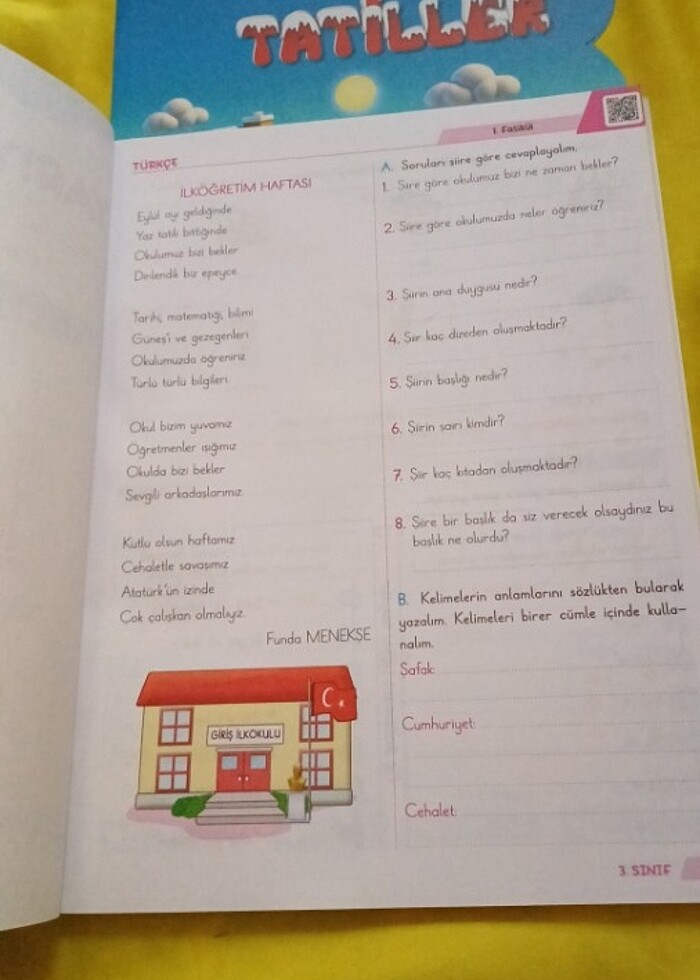 TATİLLER
1. Fasikül
TÜRKÇE
İLKÖĞRETİM HAFTASI
Eylül ayı geldiğinde
Yaz tatili bittiğinde
Okulumuz bizi bekler
Dinlendik biz epeyce
Tarihi, matematiği, bilimi
Güneş'i ve gezegenleri
Okulumuzda öğreniriz
Türlü türlü bilgileri
Okul bizim yuvamız
Öğretmenler ışığımız
Okulda bizi bekler
Sevgili arkadaşlarımız
Kutlu olsun haftamız
Cehaletle savaşımız
Atatürk'ün izinde
Çok çalışkan olmalıyız
Funda MENEKŞE
GİRİŞ İLKOKULU
A. Soruları şiire göre cevaplayalım.
1. Şiire göre okulumuz bizi ne zaman bekler?
2. Şiire göre okulumuzda neler öğreniriz?
3. Şiirin ana duygusu nedir?
4. Şiir kaç dizeden oluşmaktadır?
5. Şiirin başlığı nedir?
6. Şiirin şairi kimdir?
7. Şiir kaç kıtadan oluşmaktadır?
8. Şiire bir başlık da siz verecek olsaydınız bu
başlık ne olurdu?
B. Kelimelerin anlamlarını sözlükten bularak
yazalım. Kelimeleri birer cümle içinde kulla-
nalım.
Şafak:
Cumhuriyet:
Cehalet:
3. SINIF